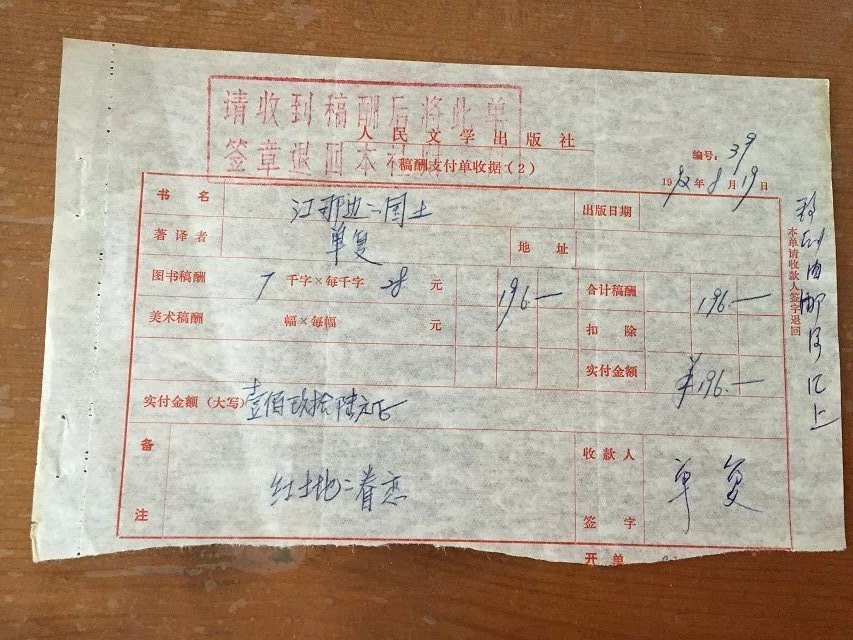 请收到稿酬后将此单
签章退回本社
人民文学出版社
稿酬支付单收据（2）
编号：39
1992年8月19日
书名 江那边二国土 出版日期
著译者 单复 地址
图书稿酬 7千字×每千字28元 196— 合计稿酬 196—
美术稿酬 幅×每幅 元 扣除
实付金额 ¥196.—
实付金额（大写）壹佰玖拾陆元正
备注 红土地二眷恋 收款人签字 单复
开单
本单请收款人签字退回
稿酬由邮局汇上